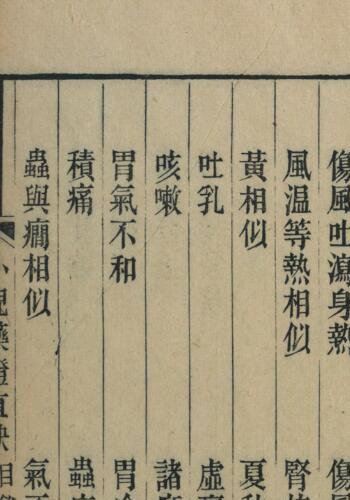 傷風吐瀉身熱 傷風
風温等熱相似 腎
黃相似 夏
吐乳 虛
咳嗽 諸
胃氣不和 胃冷
積痛 蟲
蟲與癇相似 氣不
小兒藥證直訣目